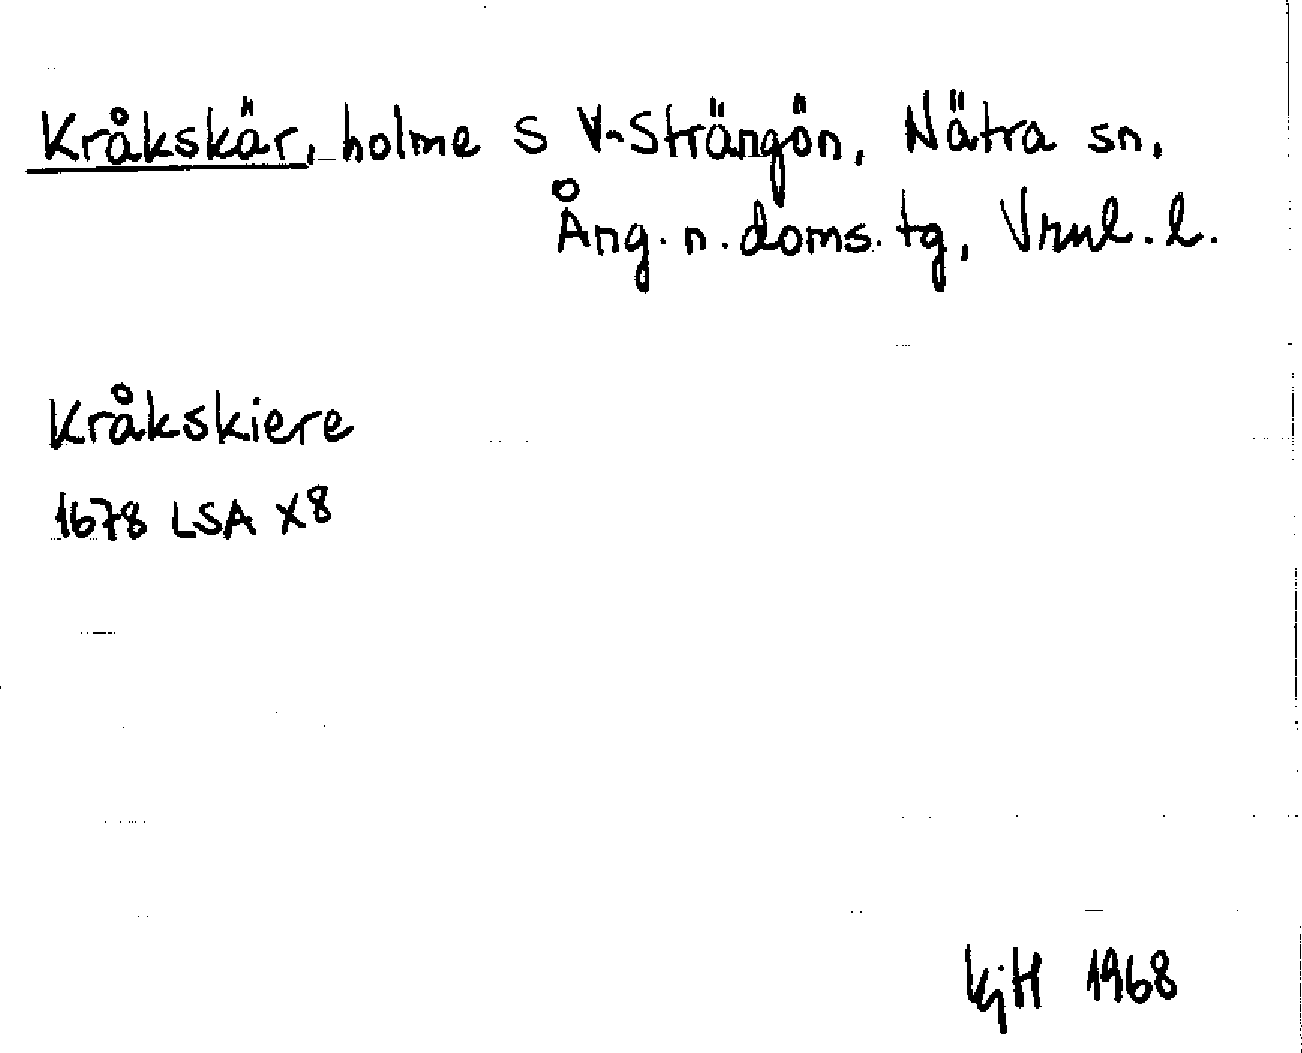 Kråkskär, holme S V-Strängön, Nätra sn,
Ång. n. doms. tg, Vrnl. l.
Kråkskiere
1678 LSA X8
KjH 1968